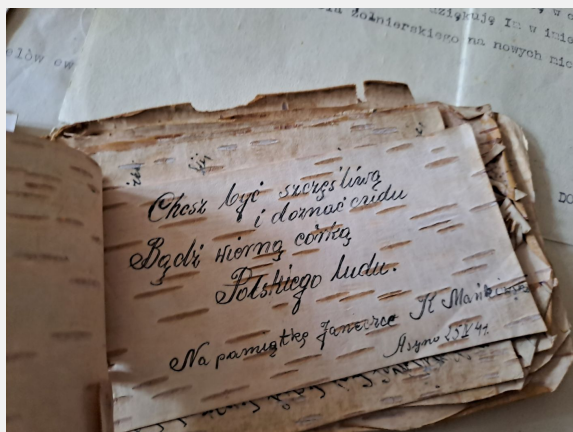 dziękuję Im w imie
żołnierskiego na nowych
elów
Chcesz być szczęśliwą
i doznać cudu
Bądź wierną córką
Polskiego ludu.
Na pamiątkę Janeczce
K Mańk
Asyno 25 V 41
DO